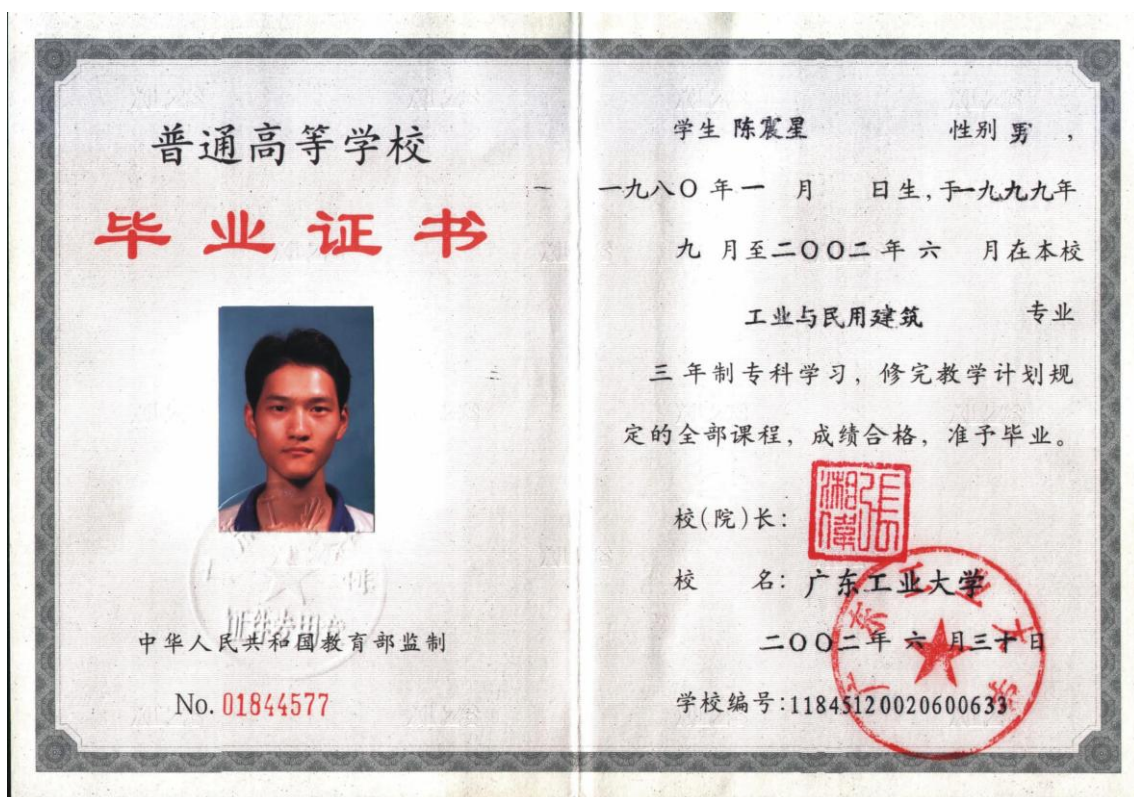 普通高等学校
毕业证书
证件专用章
中华人民共和国教育部监制
No. 01844577
学生 陈震星 性别 男,
一九八〇年一月 日生,于一九九九年
九月至二〇〇二年六月在本校
工业与民用建筑 专业
三年制专科学习,修完教学计划规
定的全部课程,成绩合格,准予毕业。
校(院)长:
張湘偉
校 名:广东工业大学
广东工业大学
二〇〇二年六月三十日
学校编号:11845120020600633